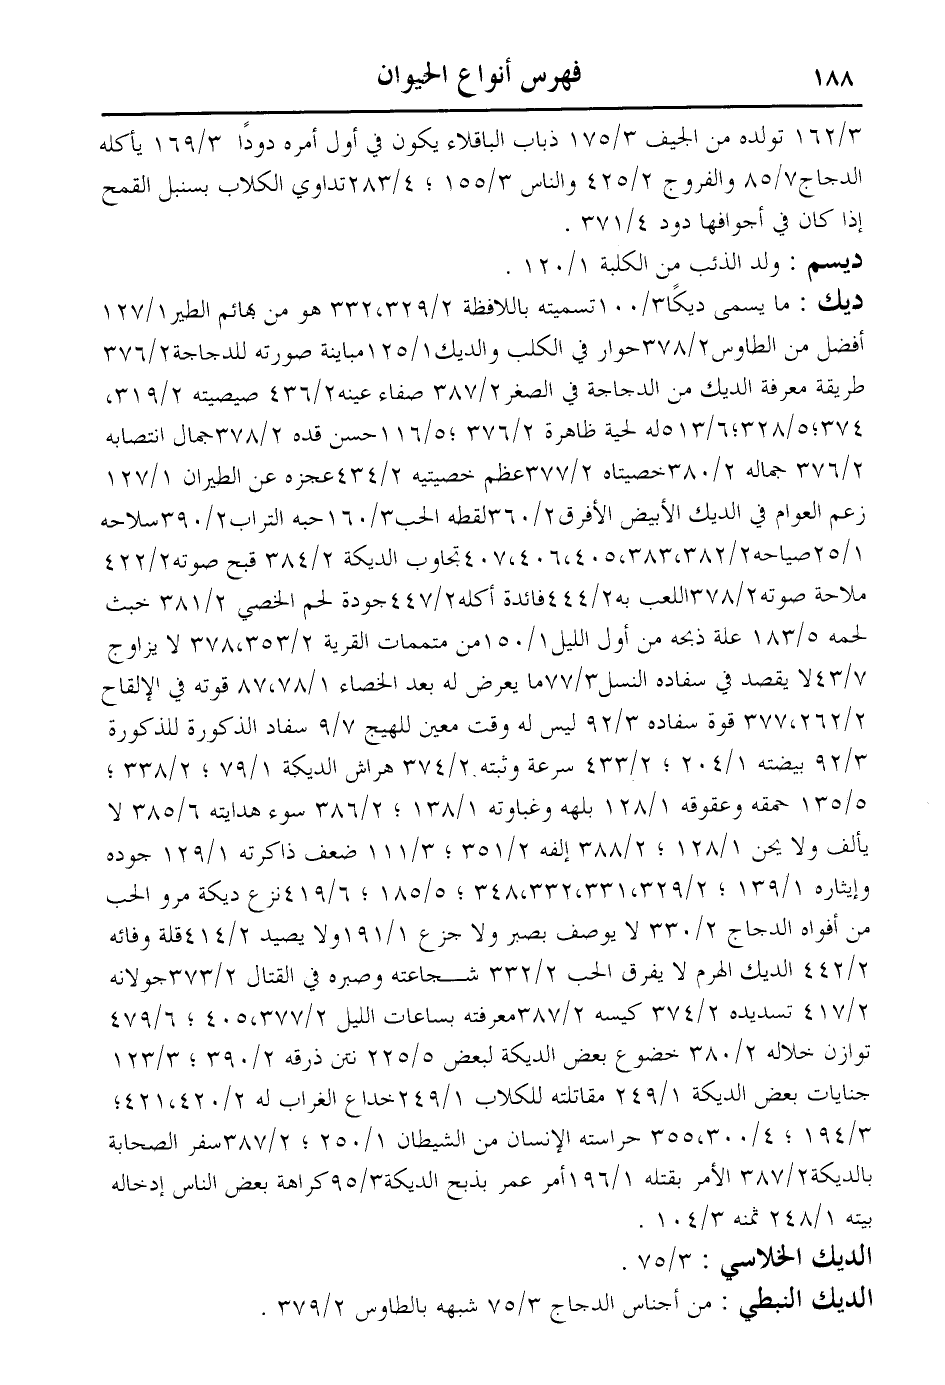 ١٨٨ فهرس أنواع الحيوان
١٦٢/٣ تولده من الجيف ١٧٥/٣ ذباب الباقلاء يكون في أول أمره دودًا ١٦٩/٣ يأكله
الدجاج٨٥/٧ والفروج ٤٢٥/٢ والناس ١٥٥/٣ ؛ ٢٨٣/٤تداوي الكلاب بسنبل القمح
إذا كان في أجوافها دود ٣٧١/٤ .
ديسم : ولد الذئب من الكلبة ١٢٠/١ .
ديك : ما يسمى ديكًا١٠٠/٣تسميته باللافظة ٣٣٢،٣٢٩/٢ هو من بهائم الطير١٢٧/١
أفضل من الطاوس٣٧٨/٢حوار في الكلب والديك١٢٥/١مباينة صورته للدجاجة٣٧٦/٢
طريقة معرفة الديك من الدجاجة في الصغر٣٨٧/٢ صفاء عينه٤٣٦/٢ صيصيته ٣١٩/٢،
٣٧٤؛٣٢٨/٥؛٥١٣/٦له لحية ظاهرة ٣٧٦/٢ ؛١١٦/٥حسن قده ٣٧٨/٢جمال انتصابه
٣٧٦/٢ جماله ٣٨٠/٢خصيتاه ٣٧٧/٢عظم خصيتيه ٤٣٤/٢عجزه عن الطيران ١٢٧/١
زعم العوام في الديك الأبيض الأفرق٣٦٠/٢لقطه الحب١٦٠/٣حبه التراب٣٩٠/٢سلاحه
٢٥/١صياحه٤٠٧،٤٠٦،٤٠٥،٣٨٣،٣٨٢/٢تجاوب الديكة ٣٨٤/٢ قبح صوته٤٢٢/٢
ملاحة صوته٣٧٨/٢اللعب به٤٤٤/٢فائدة أكله٤٤٧/٢جودة لحم الخصي ٣٨١/٢ خبث
لحمه ١٨٣/٥ علة ذبحه من أول الليل١٥٠/١من متممات القرية ٣٧٨،٣٥٣/٢ لا يزاوج
٤٣/٧لا يقصد في سفاده النسل٧٧/٣ما يعرض له بعد الخصاء ٨٧،٧٨/١ قوته في الإلقاح
٣٧٧،٢٦٢/٢ قوة سفاده ٩٢/٣ ليس له وقت معين للهيج ٩/٧ سفاد الذكورة للذكورة
٩٢/٣ بيضته ٢٠٤/١ ؛ ٤٣٣/٢ سرعة وثبته ٣٧٤/٢ هراش الديكة ٧٩/١ ؛ ٣٣٨/٢ ؛
١٣٥/٥ حمقه وعقوقه ١٢٨/١ بلهه وغباوته ١٣٨/١ ؛ ٣٨٦/٢ سوء هدايته ٣٨٥/٦ لا
يألف ولا يحن ١٢٨/١ ؛ ٣٨٨/٢ إلفه ٣٥١/٢ ؛ ١١١/٣ ضعف ذاكرته ١٢٩/١ جوده
وإيثاره ١٣٩/١ ؛ ٣٤٨،٣٣٢،٣٣١،٣٢٩/٢ ؛ ١٨٥/٥ ؛ ٤١٩/٦نزع ديكة مرو الحب
من أفواه الدجاج ٣٣٠/٢ لا يوصف بصبر ولا جزع ١٩١/١ولا يصيد ٤١٤/٢قلة وفائه
٤٤٢/٢ الديك الهرم لا يفرق الحب ٣٣٢/٢ شجاعته وصبره في القتال ٣٧٣/٢جولانه
٤١٧/٢ تسديده ٣٧٤/٢ كيسه ٣٨٧/٢معرفته بساعات الليل ٤٠٥،٣٧٧/٢ ؛ ٤٧٩/٦
توازن خلاله ٣٨٠/٢ خضوع بعض الديكة لبعض ٢٢٥/٥ نتن ذرقه ٣٩٠/٢ ؛ ١٢٣/٣
جنايات بعض الديكة ٢٤٩/١ مقاتلته للكلاب ٢٤٩/١خداع الغراب له ٤٢١،٤٢٠/٢؛
١٩٤/٣ ؛ ٣٥٥،٣٠٠/٤ حراسته الإنسان من الشيطان ٢٥٠/١ ؛ ٣٨٧/٢سفر الصحابة
بالديكة٣٨٧/٢ الأمر بقتله ١٩٦/١أمر عمر بذبح الديكة٩٥/٣كراهة بعض الناس إدخاله
بيته ٢٤٨/١ ثمنه ١٠٤/٣ .
الديك الخلاسي : ٧٥/٣ .
الديك النبطي : من أجناس الدجاج ٧٥/٣ شبهه بالطاوس ٣٧٩/٢ .